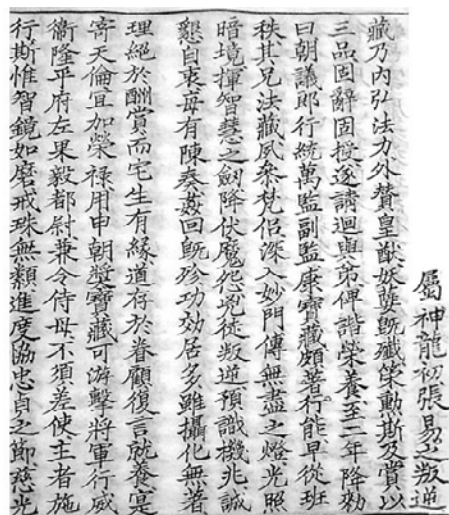 屬神龍初張易之叛逆
藏乃内弘法力外贊皇猷妖孽既殲策勳斯及賞以
三品固辭固授遂請迴與弟俾諧榮養至二年降勑
曰朝議郎行統萬監副監康寶藏頗著行能早從班
秩其兄法藏夙參梵侣深入妙門傳無盡之燈光照
暗境揮智慧之劔降伏魔怨兇徒叛逆預識機兆誠
懇自衷毋有陳奏姦回既殄功効居多雖攝化無著
理絕於酬賞而宅生有緣道存於眷顧復言就養寔
寄天倫宜加榮祿用申朝奬寶藏可游擊將軍行威
衛隆平府左果毅都尉兼令侍母不須差使主者施
行斯惟智鏡如磨戒珠無纇進度協忠貞之節慈光